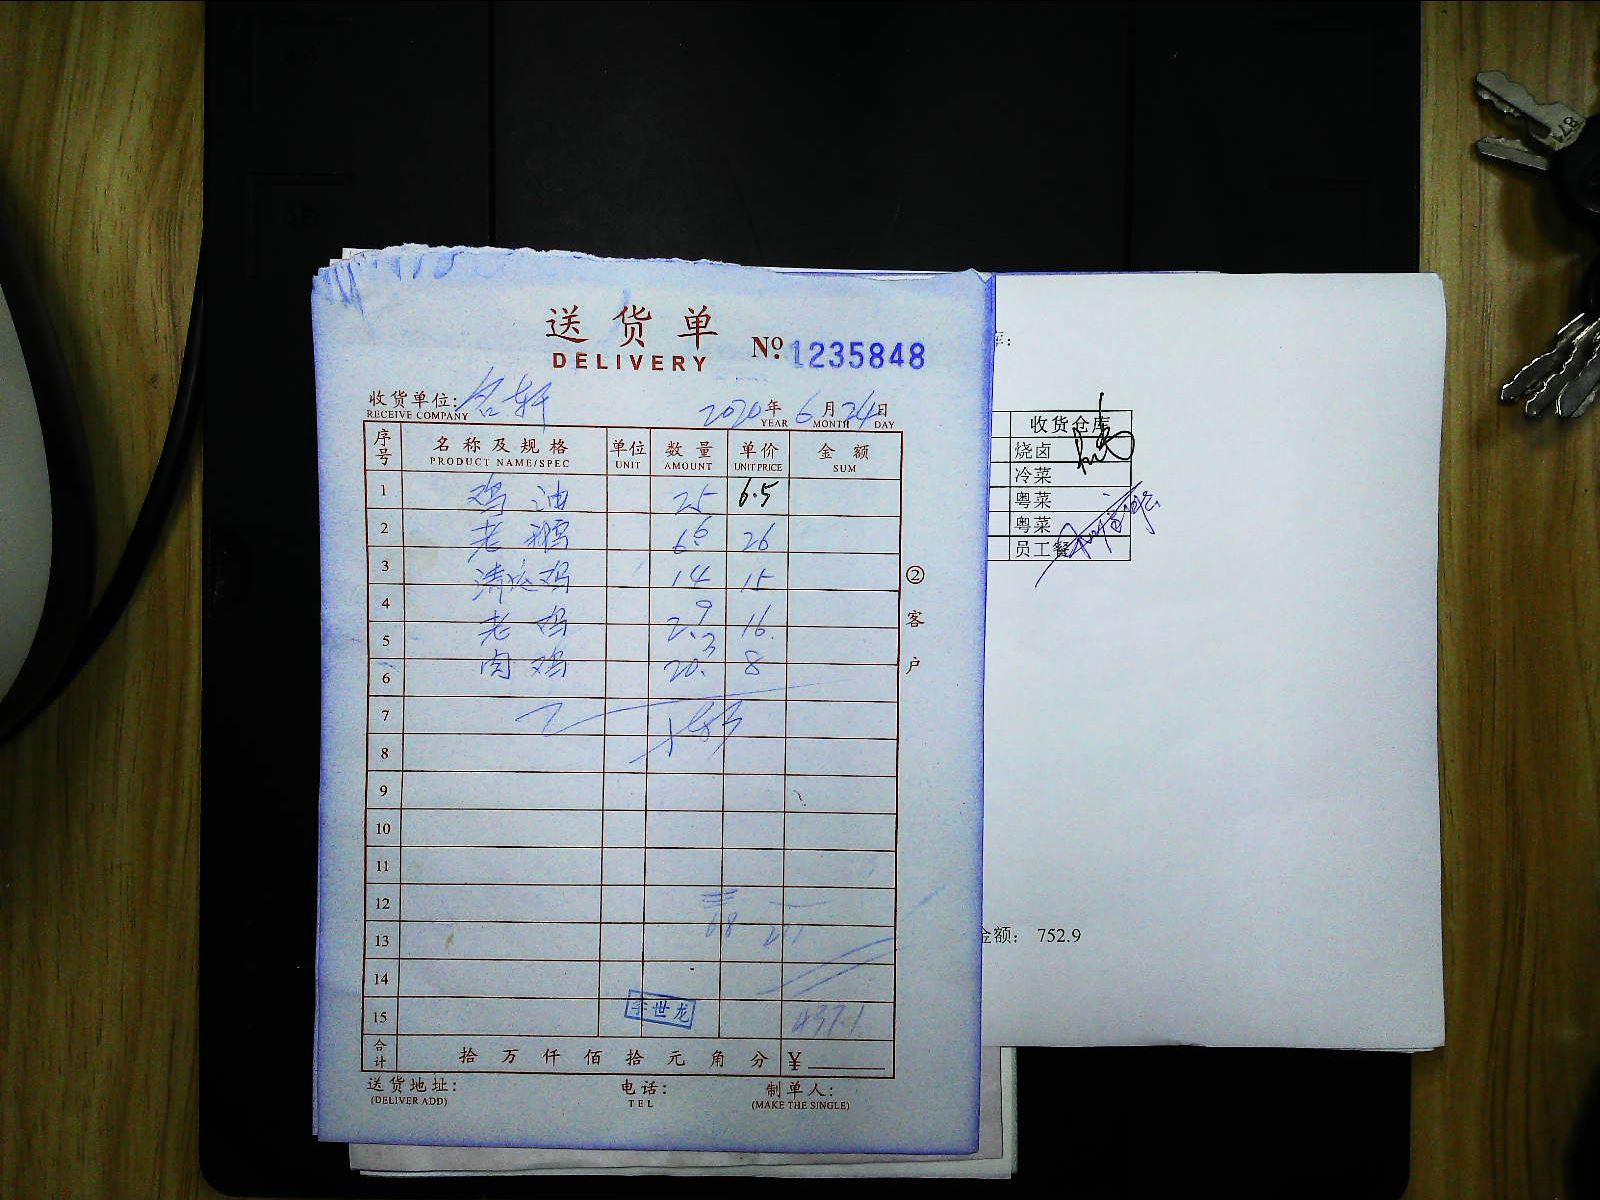 送货单
DELIVERY
№ 1235848
收货单位: 名轩
RECEIVE COMPANY
2020年 6月 24日
YEAR MONTH DAY
序号 名称及规格 单位 数量 单价 金额
PRODUCT NAME/SPEC UNIT AMOUNT UNIT PRICE SUM
1 鸡油 25 6.5
2 老鸭 6.6 26
3 清远鸡 14 15
4 老鸡 2.9 16
5 肉鸡 20.3 8
6
7
8
9
10
11
12
13
14
15
李世龙
合计 拾 万 仟 佰 拾 元 角 分 ¥
送货地址: 电话: 制单人:
(DELIVER ADD) TEL (MAKE THE SINGLE)
② 客户
库:
收货仓库
烧卤
冷菜
粤菜
粤菜
员工餐
金额: 752.9
871